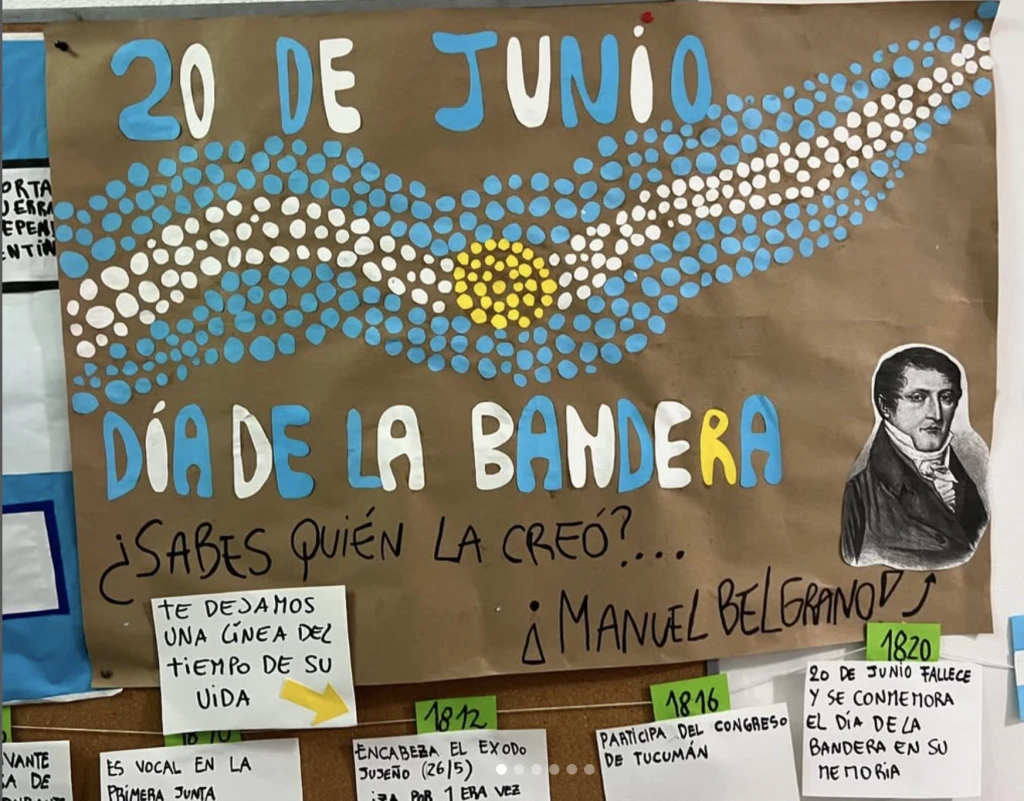 20 DE JUNIO
DÍA DE LA BANDERA
¿SABES QUIÉN LA CREÓ?...
¡MANUEL BELGRANO!
TE DEJAMOS
UNA LÍNEA DEL
TIEMPO DE SU
VIDA
1810
ES VOCAL EN LA
PRIMERA JUNTA
1812
ENCABEZA EL EXODO
JUJEÑO (26/5)
IZA POR 1 ERA VEZ
1816
PARTICIPA DEL CONGRESO
DE TUCUMÁN
1820
20 DE JUNIO FALLECE
Y SE CONMEMORA
EL DÍA DE LA
BANDERA EN SU
MEMORIA